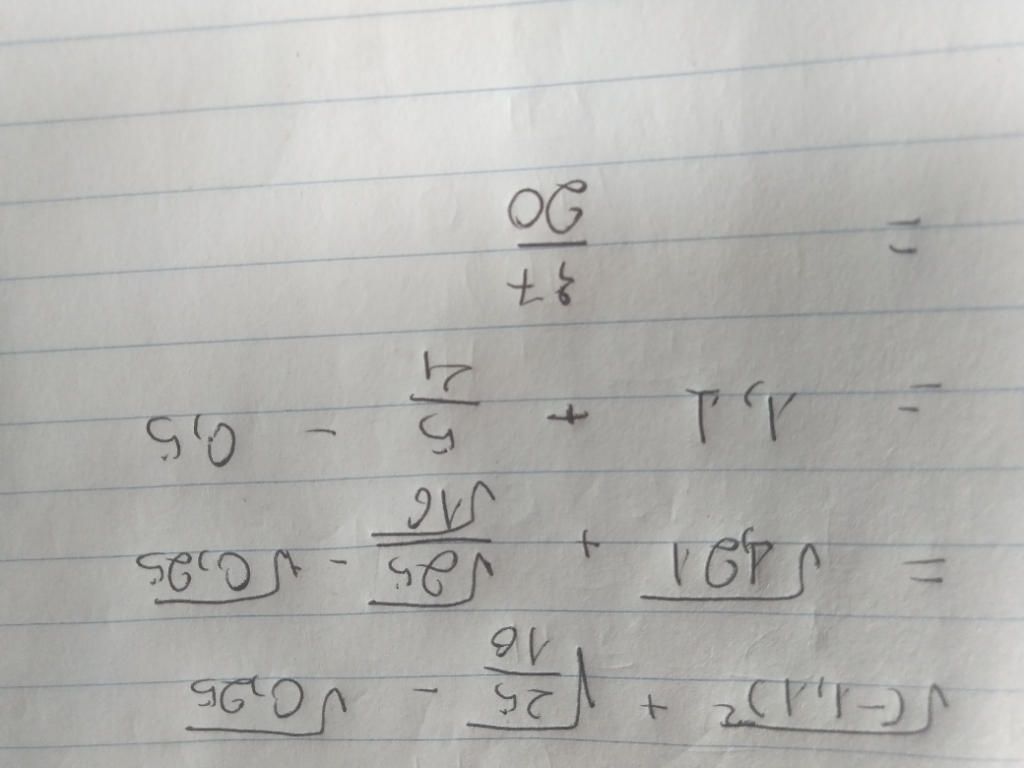 √(-1,1)² + √25/16 - √0,25
= √1,21 + √25/√16 - √0,25
= 1,1 + 5/4 - 0,5
= 37/20